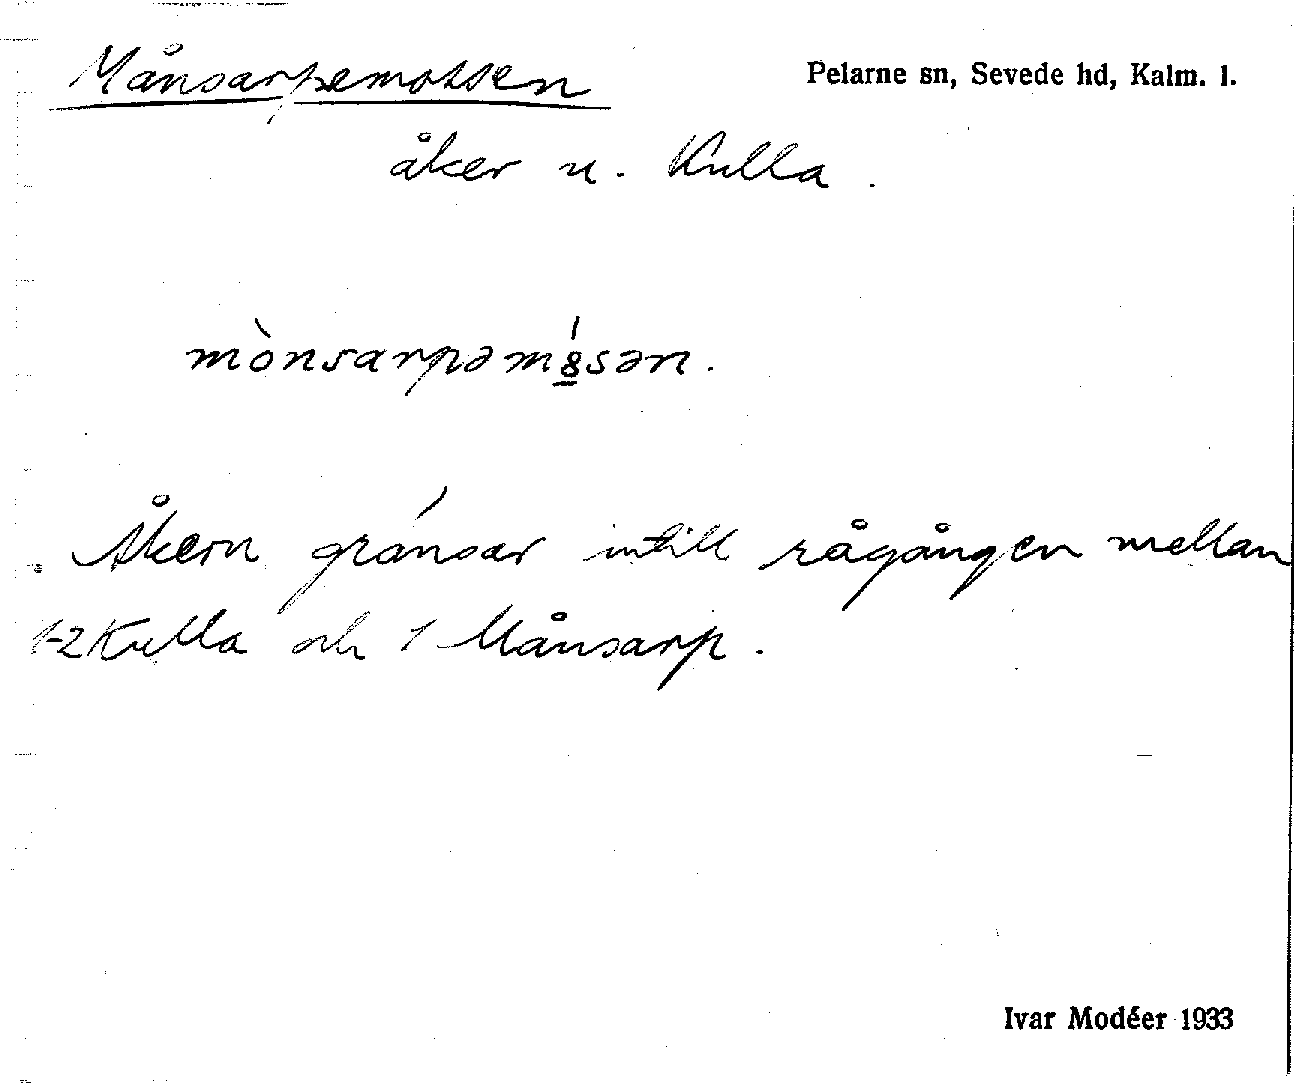 Månsarpemossen
Pelarne sn, Sevede hd, Kalm. l.
åker u. Kulla.
mònsarpəmȣ̲́sən.
Åkern gränsar intill rågången mellan
1-2 Kulla och 1 Månsarp.
Ivar Modéer 1933